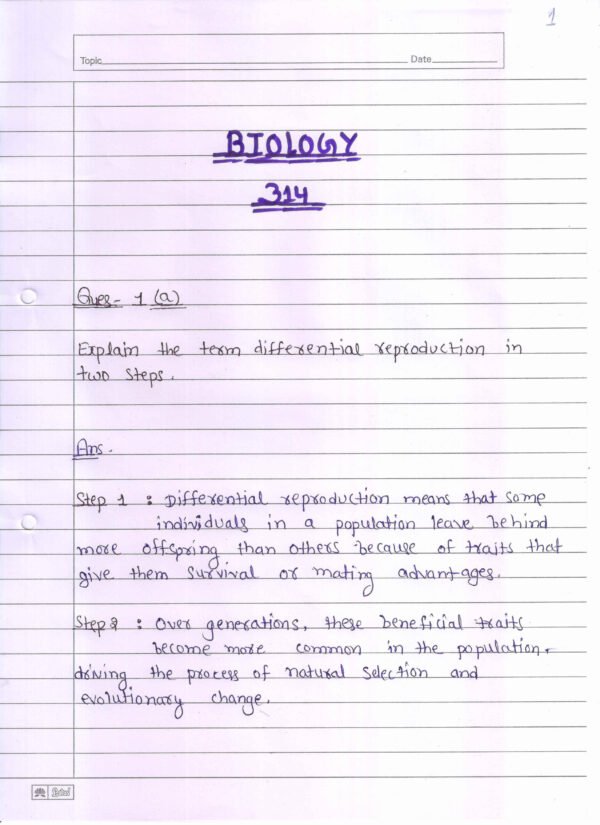 1
Topic Date
BIOLOGY
314
Ques- 1 (a)
Explain the term differential reproduction in
two steps.
Ans.
Step 1 : Differential reproduction means that some
individuals in a population leave behind
more offspring than others because of traits that
give them survival or mating advantages.
Step 2 : Over generations, these beneficial traits
become more common in the population,
driving the process of natural selection and
evolutionary change.